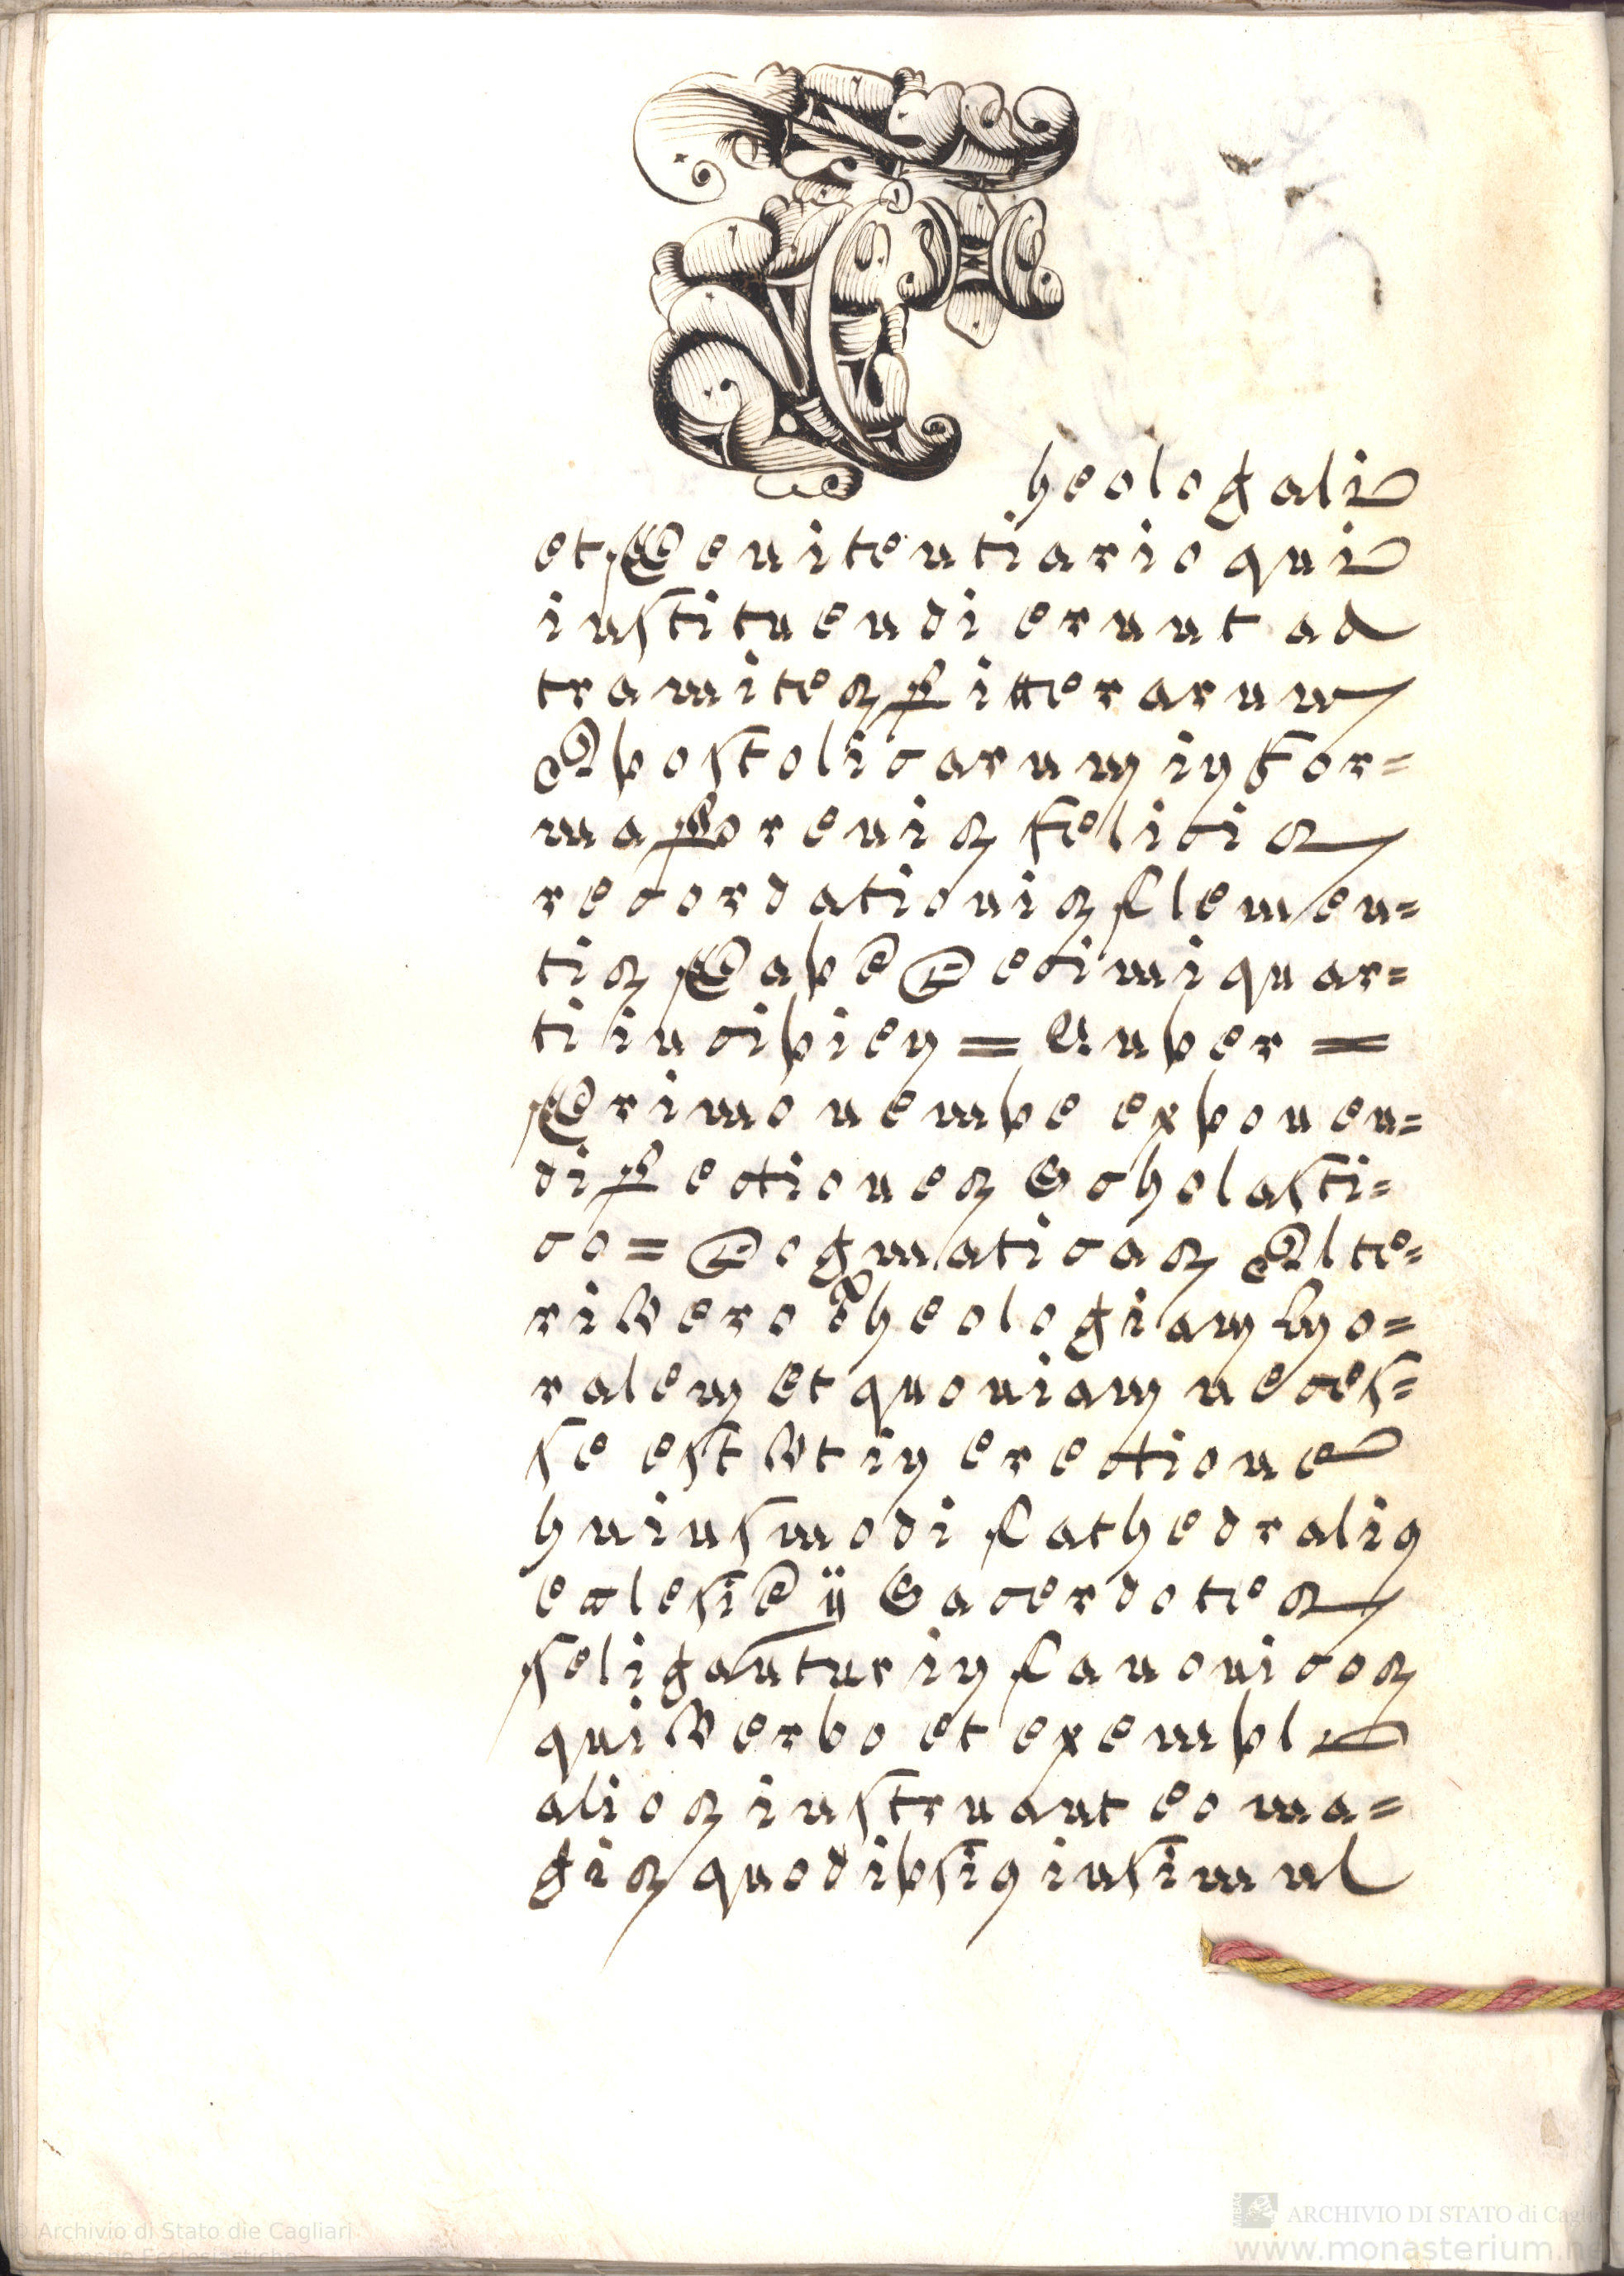 Theologali
et Penitentiario qui
instituendi erunt ad
tramites Litterarum
Apostolicarum in for=
ma Brevis felicis
recordationis Clemen=
tis Papę Decimi quar=
ti incipien = Nuper =
Primo nempe exponen=
di Lectiones Scholasti=
co = Dogmaticas Alte=
ri Vero Theologiam Mo=
ralem et quoniam neces=
se est Vt in erectione
huiusmodi Cathedralis
eclesię ij Sacerdotes
seligantur in Canonicos
qui Verbo et exemplo
alios instruant eo ma=
gis quod ipsis insimul
© Archivio di Stato die Cagliari
ARCHIVIO DI STATO di Cagliari
www.monasterium.net